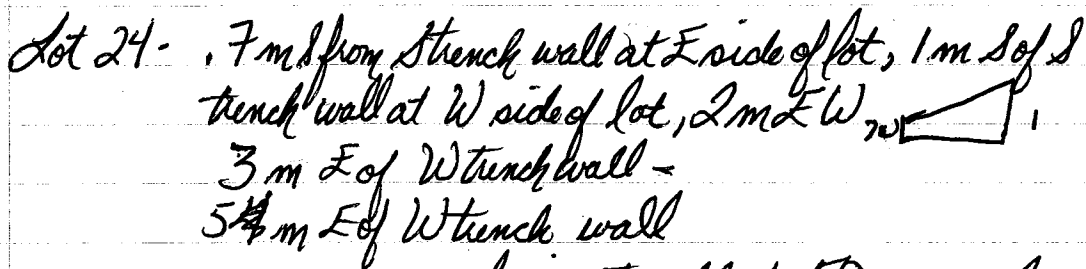 Lot 24- .7 m S from S trench wall at E side of lot, 1 m S of S
trench wall at W side of lot, 2 m E W
3 m E of W trench wall -
5 m E of W trench wall